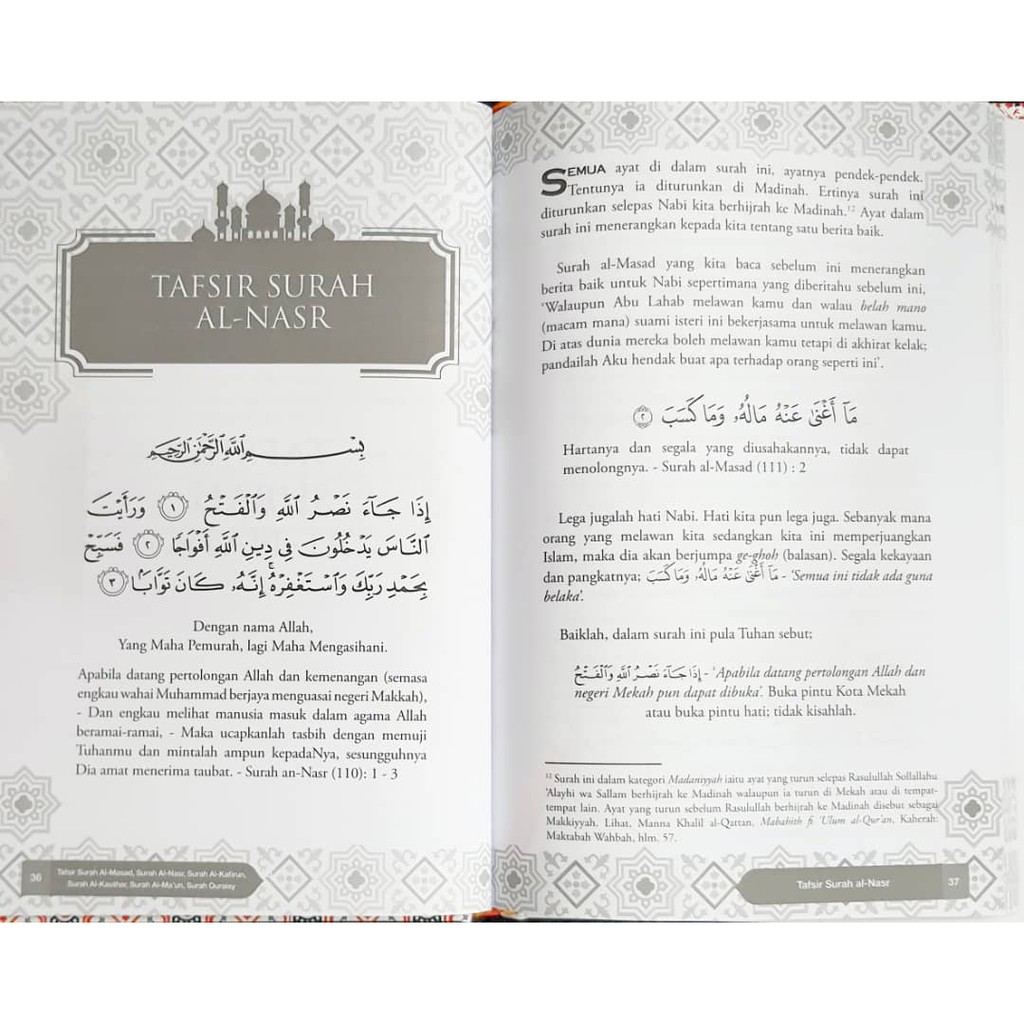 TAFSIR SURAH
AL-NASR
بِسْــمِ اللَّهِ الرَّحْمَٰنِ الرَّحِيمِ
إِذَا جَآءَ نَصْرُ ٱللَّهِ وَٱلْفَتْحُ ١ وَرَأَيْتَ
ٱلنَّاسَ يَدْخُلُونَ فِى دِينِ ٱللَّهِ أَفْوَاجًا ٢ فَسَبِّحْ
بِحَمْدِ رَبِّكَ وَٱسْتَغْفِرْهُ ۚ إِنَّهُۥ كَانَ تَوَّابًۢا ٣
Dengan nama Allah,
Yang Maha Pemurah, lagi Maha Mengasihani.
Apabila datang pertolongan Allah dan kemenangan (semasa
engkau wahai Muhammad berjaya menguasai negeri Makkah),
- Dan engkau melihat manusia masuk dalam agama Allah
beramai-ramai, - Maka ucapkanlah tasbih dengan memuji
Tuhanmu dan mintalah ampun kepadaNya, sesungguhnya
Dia amat menerima taubat. - Surah an-Nasr (110): 1 - 3
36
Tafsir Surah Al-Masad, Surah Al-Nasr, Surah Al-Kafirun,
Surah Al-Kauthar, Surah Al-Ma'un, Surah Quraisy
SEMUA ayat di dalam surah ini, ayatnya pendek-pendek.
Tentunya ia diturunkan di Madinah. Ertinya surah ini
diturunkan selepas Nabi kita berhijrah ke Madinah.¹² Ayat dalam
surah ini menerangkan kepada kita tentang satu berita baik.
Surah al-Masad yang kita baca sebelum ini menerangkan
berita baik untuk Nabi sepertimana yang diberitahu sebelum ini,
'Walaupun Abu Lahab melawan kamu dan walau belah mano
(macam mana) suami isteri ini bekerjasama untuk melawan kamu.
Di atas dunia mereka boleh melawan kamu tetapi di akhirat kelak;
pandailah Aku hendak buat apa terhadap orang seperti ini'.
مَآ أَغْنَىٰ عَنْهُ مَالُهُۥ وَمَا كَسَبَ ٢
Hartanya dan segala yang diusahakannya, tidak dapat
menolongnya. - Surah al-Masad (111) : 2
Lega jugalah hati Nabi. Hati kita pun lega juga. Sebanyak mana
orang yang melawan kita sedangkan kita ini memperjuangkan
Islam, maka dia akan berjumpa ge-ghoh (balasan). Segala kekayaan
dan pangkatnya; مَآ أَغْنَىٰ عَنْهُ مَالُهُۥ وَمَا كَسَبَ - 'Semua ini tidak ada guna
belaka'.
Baiklah, dalam surah ini pula Tuhan sebut;
إِذَا جَآءَ نَصْرُ ٱللَّهِ وَٱلْفَتْحُ - 'Apabila datang pertolongan Allah dan
negeri Mekah pun dapat dibuka'. Buka pintu Kota Mekah
atau buka pintu hati; tidak kisahlah.
¹² Surah ini dalam kategori Madaniyyah iaitu ayat yang turun selepas Rasulullah Sollallahu
'Alayhi wa Sallam berhijrah ke Madinah walaupun ia turun di Mekah atau di tempat-
tempat lain. Ayat yang turun sebelum Rasulullah berhijrah ke Madinah disebut sebagai
Makkiyyah. Lihat, Manna Khalil al-Qattan, Mabahith fi 'Ulum al-Qur'an, Kaherah:
Maktabah Wahbah, hlm. 57.
Tafsir Surah al-Nasr
37